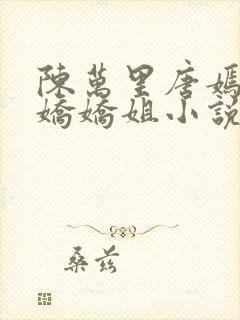 陳萬里唐嫣
嬌嬌姐小說
桑茲